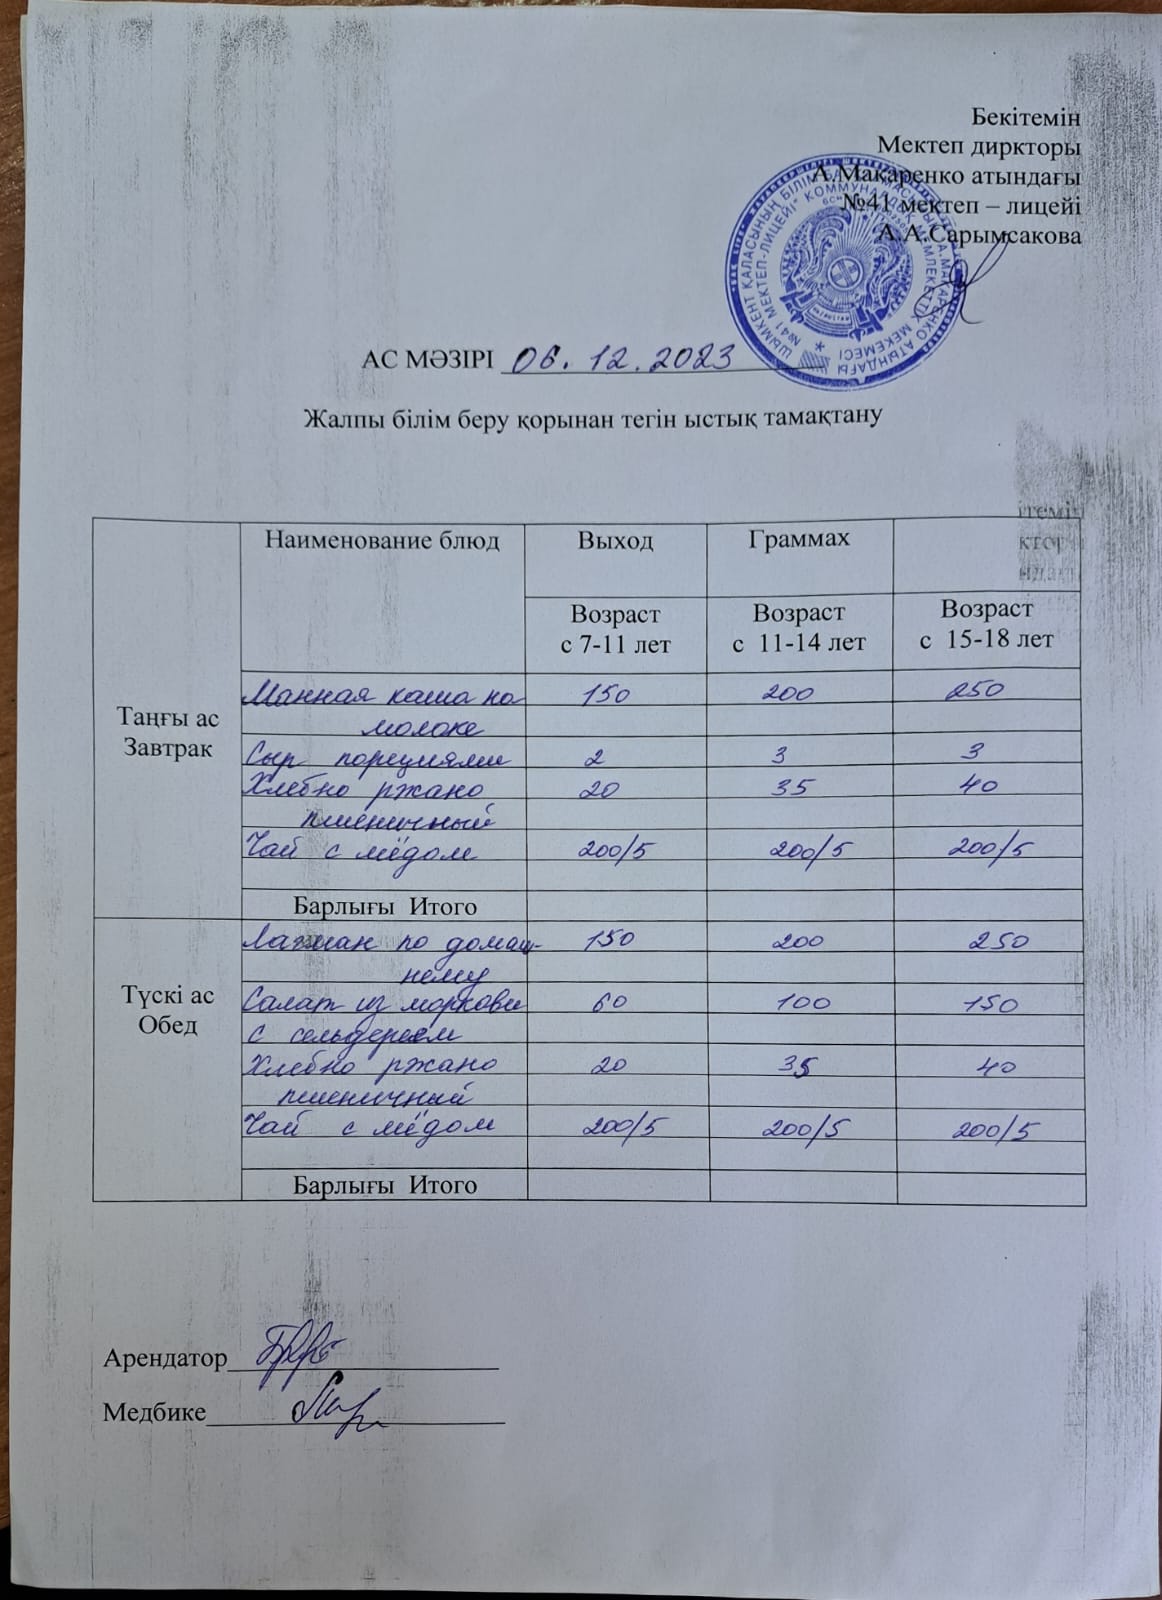 Бекітемін
Мектеп диркторы
А.Макаренко атындағы
№41 мектеп – лицейі
А.А.Сарымсакова
АС МӘЗІРІ 06.12.2023
Жалпы білім беру қорынан тегін ыстық тамақтану
Наименование блюд Выход Граммах
Возраст с 7-11 лет Возраст с 11-14 лет Возраст с 15-18 лет
Таңғы ас
Завтрак
Манная каша на 150 200 250
молоке
Сыр порциями 2 3 3
Хлебно ржано 20 35 40
пшеничный
Чай с мёдом 200/5 200/5 200/5
Барлығы Итого
Түскі ас
Обед
Лагман по домаш- 150 200 250
нему
Салат из моркови 60 100 150
с сельдереем
Хлебно ржано 20 35 40
пшеничный
Чай с мёдом 200/5 200/5 200/5
Барлығы Итого
Арендатор
Медбике